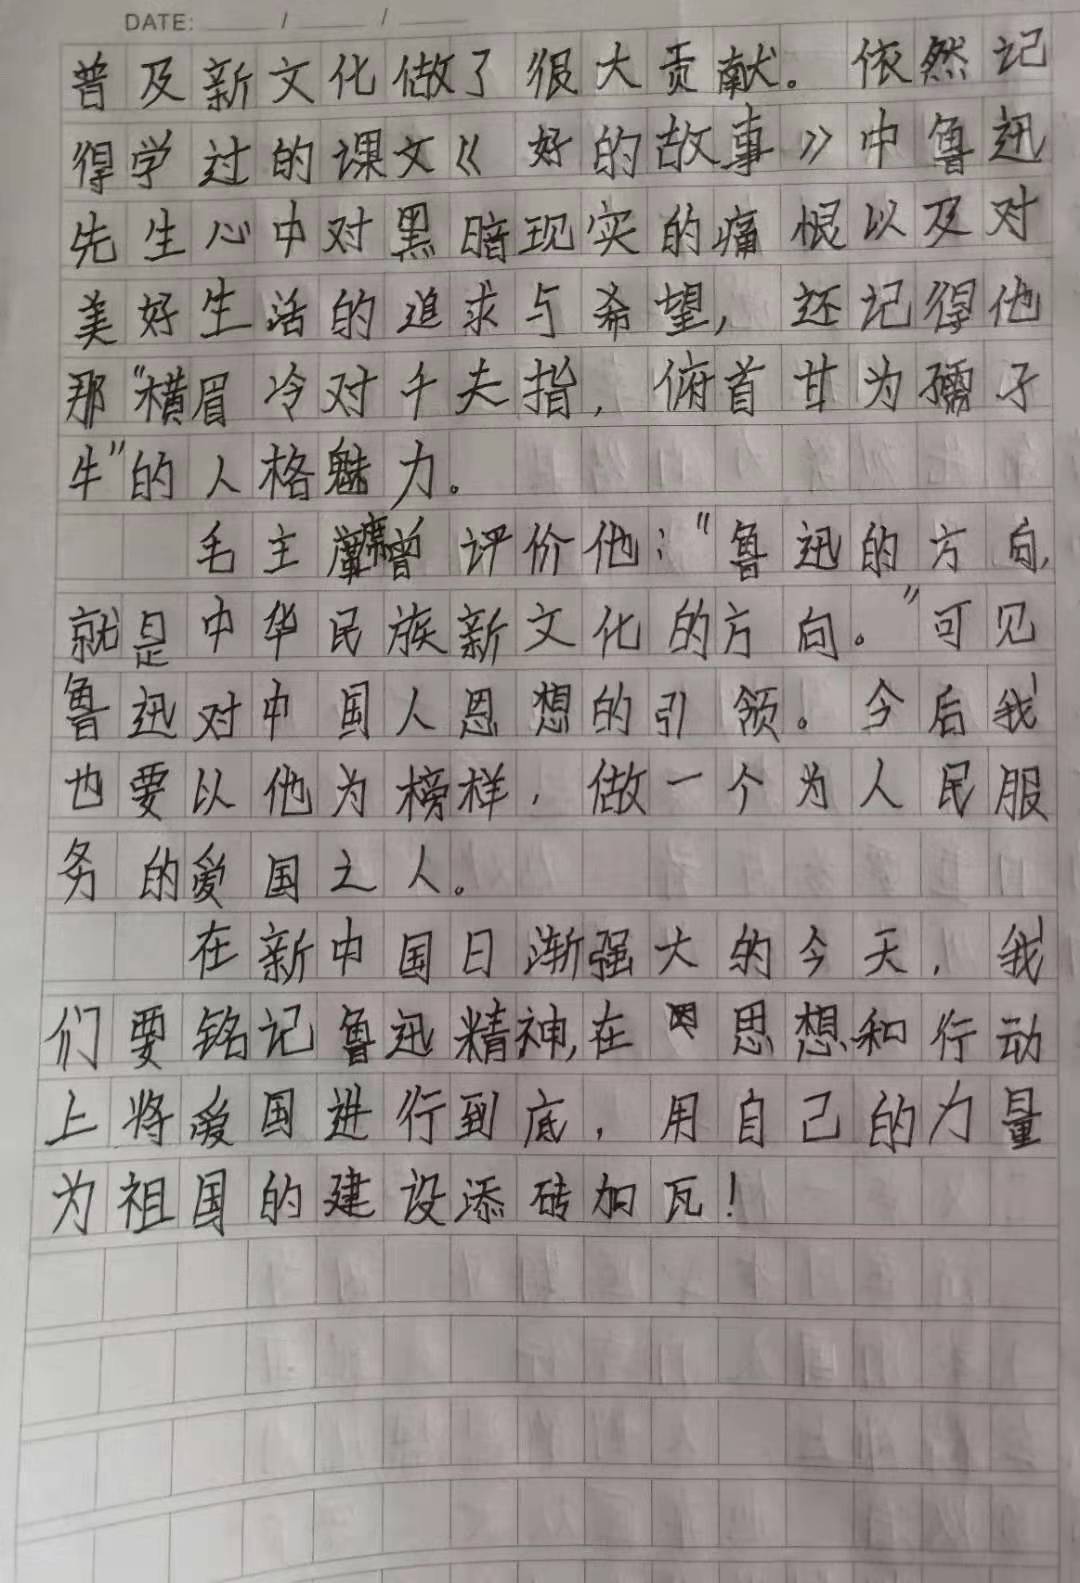 DATE: ____ / ____ / ____
普及新文化做了很大贡献。依然记
得学过的课文《好的故事》中鲁迅
先生心中对黑暗现实的痛恨以及对
美好生活的追求与希望，还记得他
那“横眉冷对千夫指，俯首甘为孺子
牛”的人格魅力。
毛主席曾评价他：“鲁迅的方向，
就是中华民族新文化的方向。”可见
鲁迅对中国人思想的引领。今后我
也要以他为榜样，做一个为人民服
务的爱国之人。
在新中国日渐强大的今天，我
们要铭记鲁迅精神，在思想和行动
上将爱国进行到底，用自己的力量
为祖国的建设添砖加瓦！